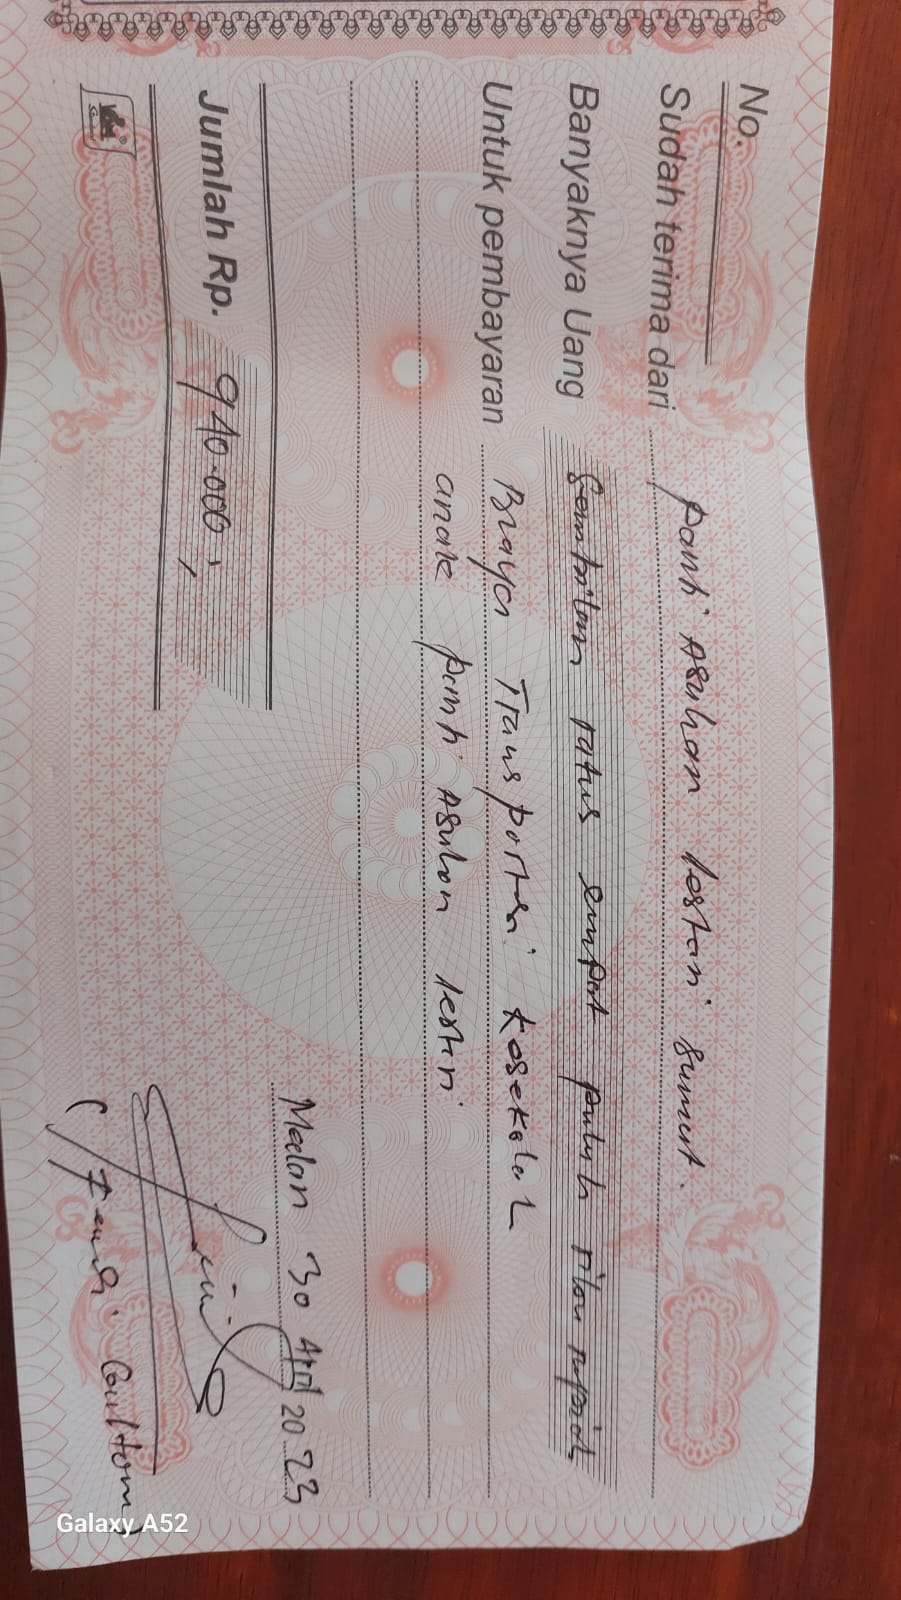 No.
Sudah terima dari Panti Asuhan lestari sumut.
Banyaknya Uang Sembilan ratus empat puluh ribu rupiah
Untuk pembayaran Biaya Transportasi kesekolah
anak panti Asuhan lestari
Medan 30 April 2023
Jumlah Rp. 940.000,
Gaultom
Galaxy A52